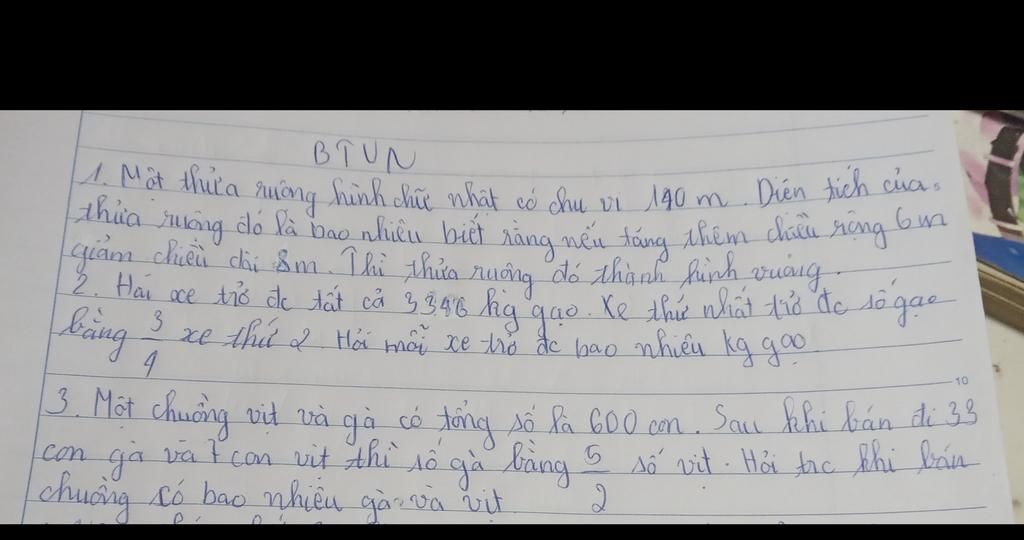 BTVN
1. Một thửa ruộng hình chữ nhật có chu vi 140 m. Diên tích của
thửa ruộng đó là bao nhiêu biết rằng nếu tăng thêm chiều rộng 6m
giảm chiều dài 8m. Thì thửa ruộng đó thành hình vuông.
2. Hai xe trở đc tất cả 3346 kg gạo. Xe thứ nhất trở đc số gạo
bằng 3/4 xe thứ 2. Hỏi mỗi xe trở đc bao nhiêu kg gạo
10
3. Một chuồng vịt và gà có tổng số là 600 con. Sau khi bán đi 33
con gà và 7 con vịt thì số gà bằng 5/2 số vịt. Hỏi trc khi bán
chuồng có bao nhiêu gà và vịt